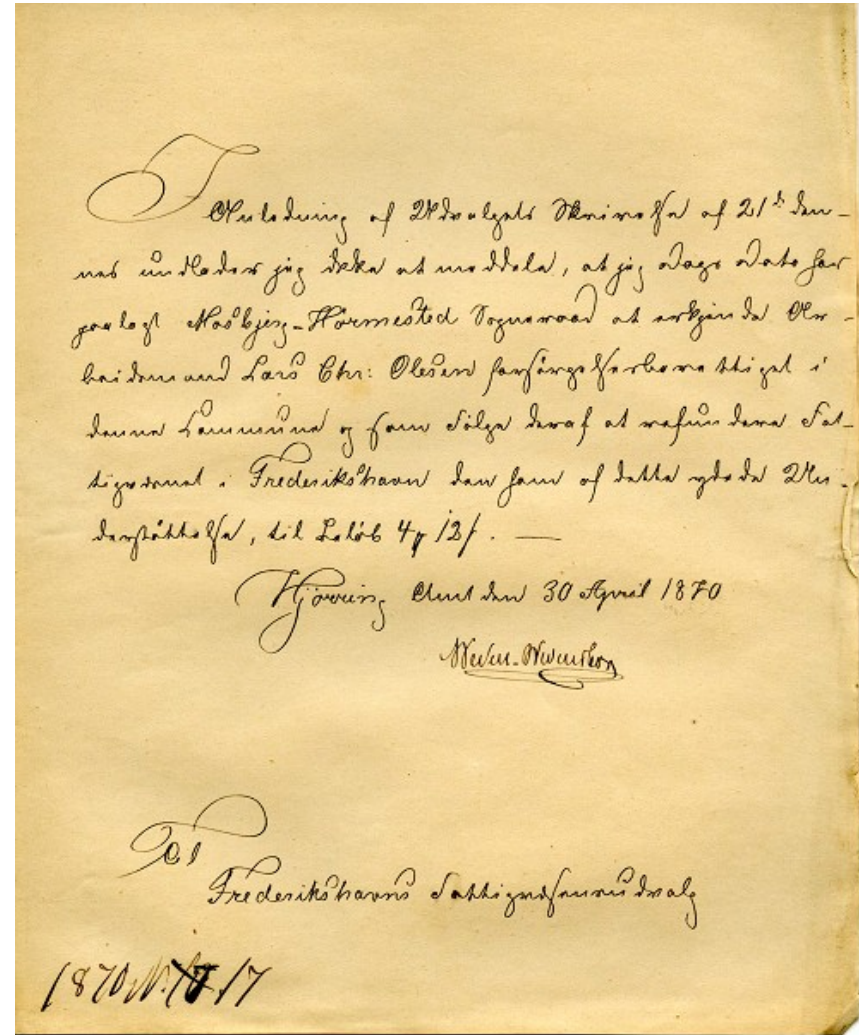 I
Anledning af Udvalgets Skrivelse af 21d. den-
nes undlader jeg ikke at meddele, at jeg Dags Dato har
paalagt Mosbjerg-Hørmested Sogneraad at erkjende Ar-
beidsmand Lars Chr: Olesen forsørgelsesberettiget i
denne Commune og som Følge deraf at refundere Fat-
tigvæsnet i Frederikshavn den ham af dette ydede Un-
derstøttelse, til Beløb 4 12 /. —
Hjørring Amt den 30 April 1870
Til
Frederikshavns Fattigvæsensudvalg
1870 N. 17